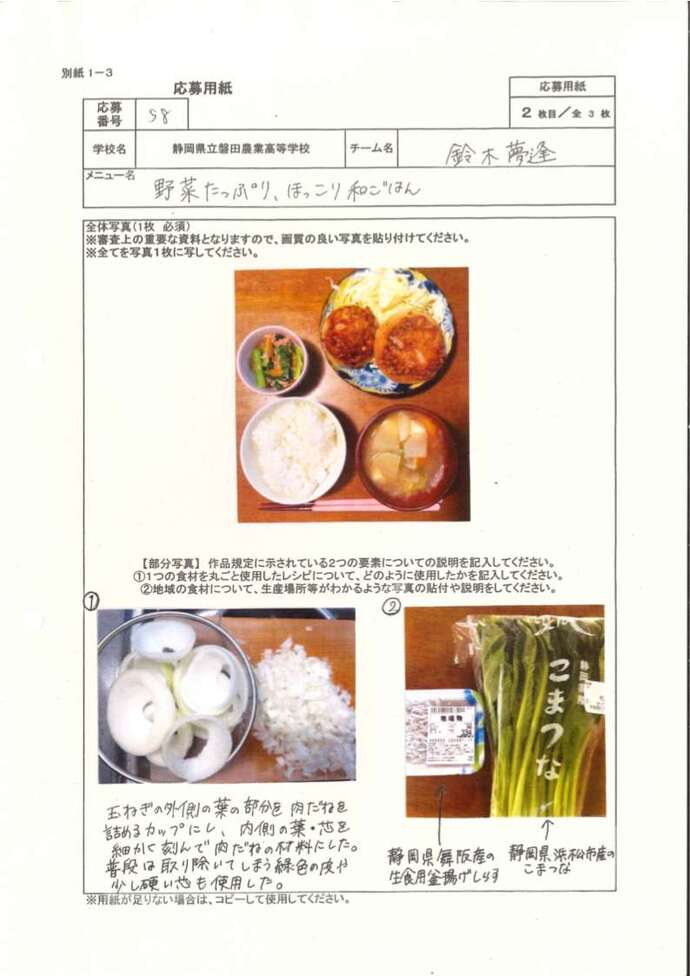 別紙1-3
応募用紙
応募用紙
応募番号
58
2 枚目/全 3 枚
学校名
静岡県立磐田農業高等学校
チーム名
鈴木夢逢
メニュー名
野菜たっぷり、ほっこり和ごはん
全体写真(1枚 必須)
※審査上の重要な資料となりますので、画質の良い写真を貼り付けてください。
※全てを写真1枚に写してください。
【部分写真】 作品規定に示されている2つの要素についての説明を記入してください。
①1つの食材を丸ごと使用したレシピについて、どのように使用したかを記入してください。
②地域の食材について、生産場所等がわかるような写真の貼付や説明をしてください。
①
②
静岡
こまつな
玉ねぎの外側の葉の部分を肉だねを
詰めるカップにし、内側の葉・芯を
細かく刻んで肉だねの材料にした。
普段は取り除いてしまう緑色の皮や
少し硬い芯も使用した。
静岡県舞阪産の
生食用釜揚げしらす
静岡県浜松市産の
こまつな
※用紙が足りない場合は、コピーして使用してください。